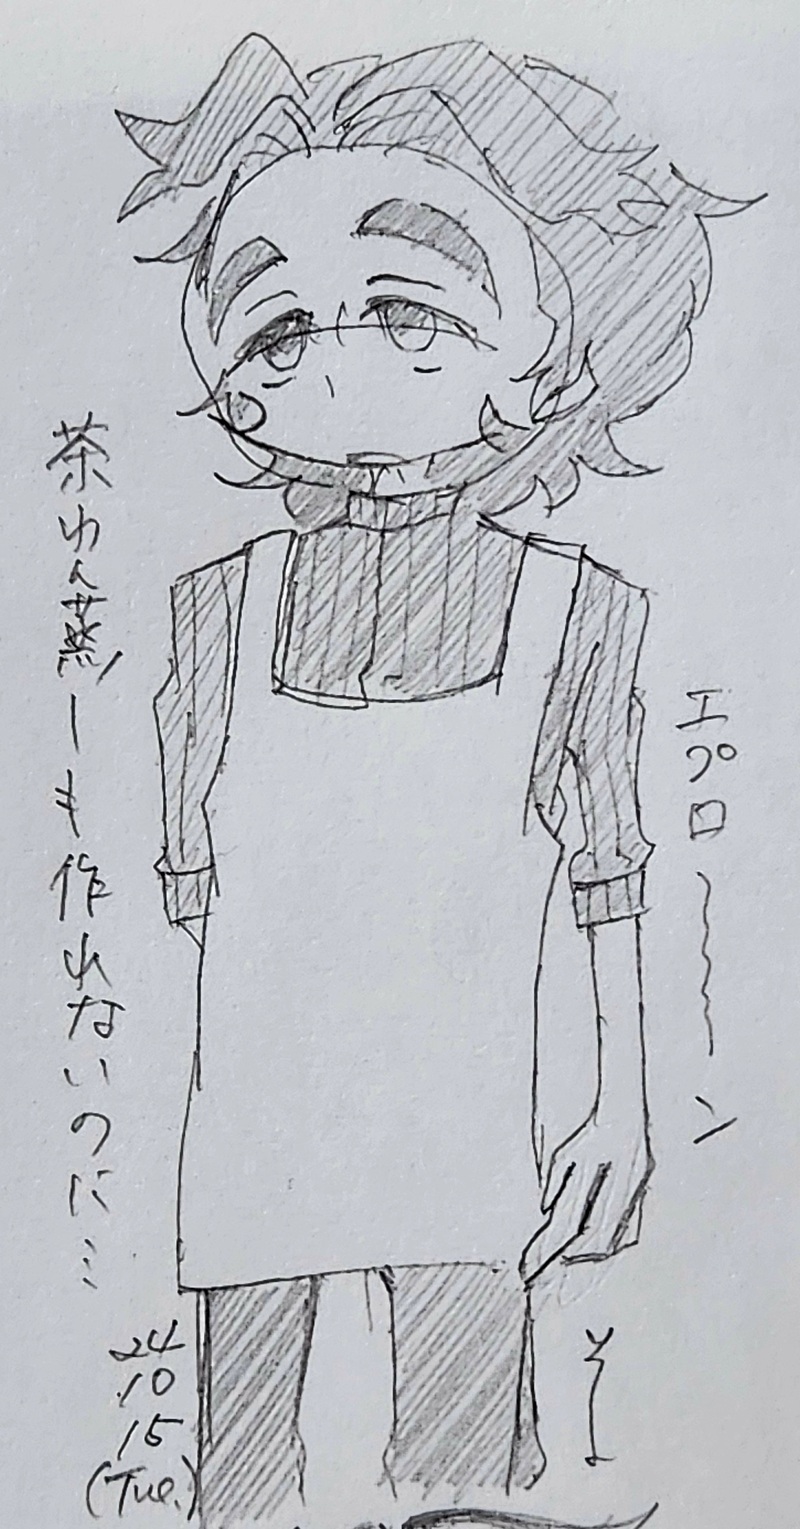 エプロ〜〜〜ン
茶わん蒸しも作れないのに…
24
10
15
(Tue.)